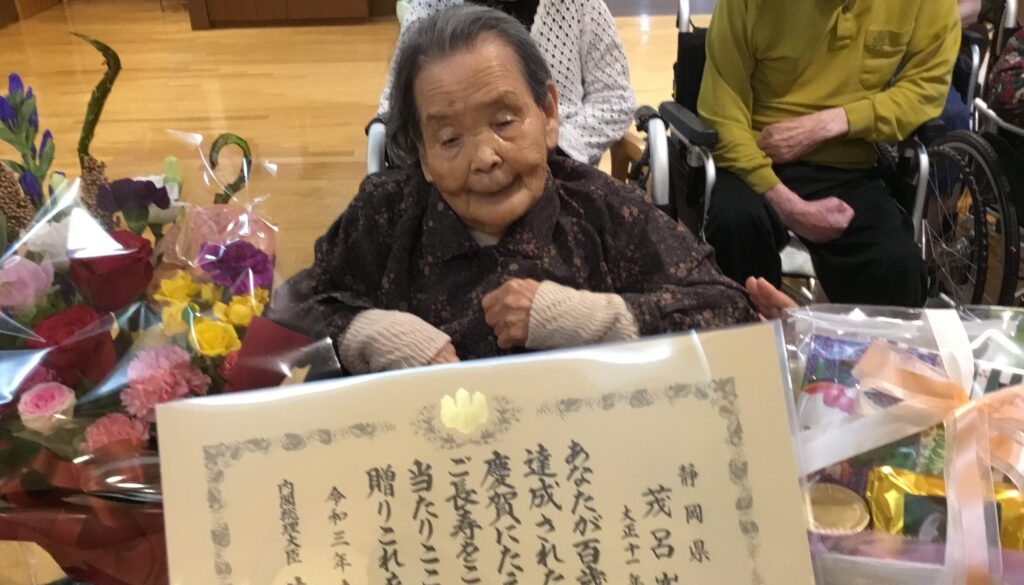 静岡県
茂呂
大正十一年
あなたが百歳
達成された
慶賀にたえ
ご長寿をこ
当たりここ
贈りこれを
令和三年
内閣総理大臣